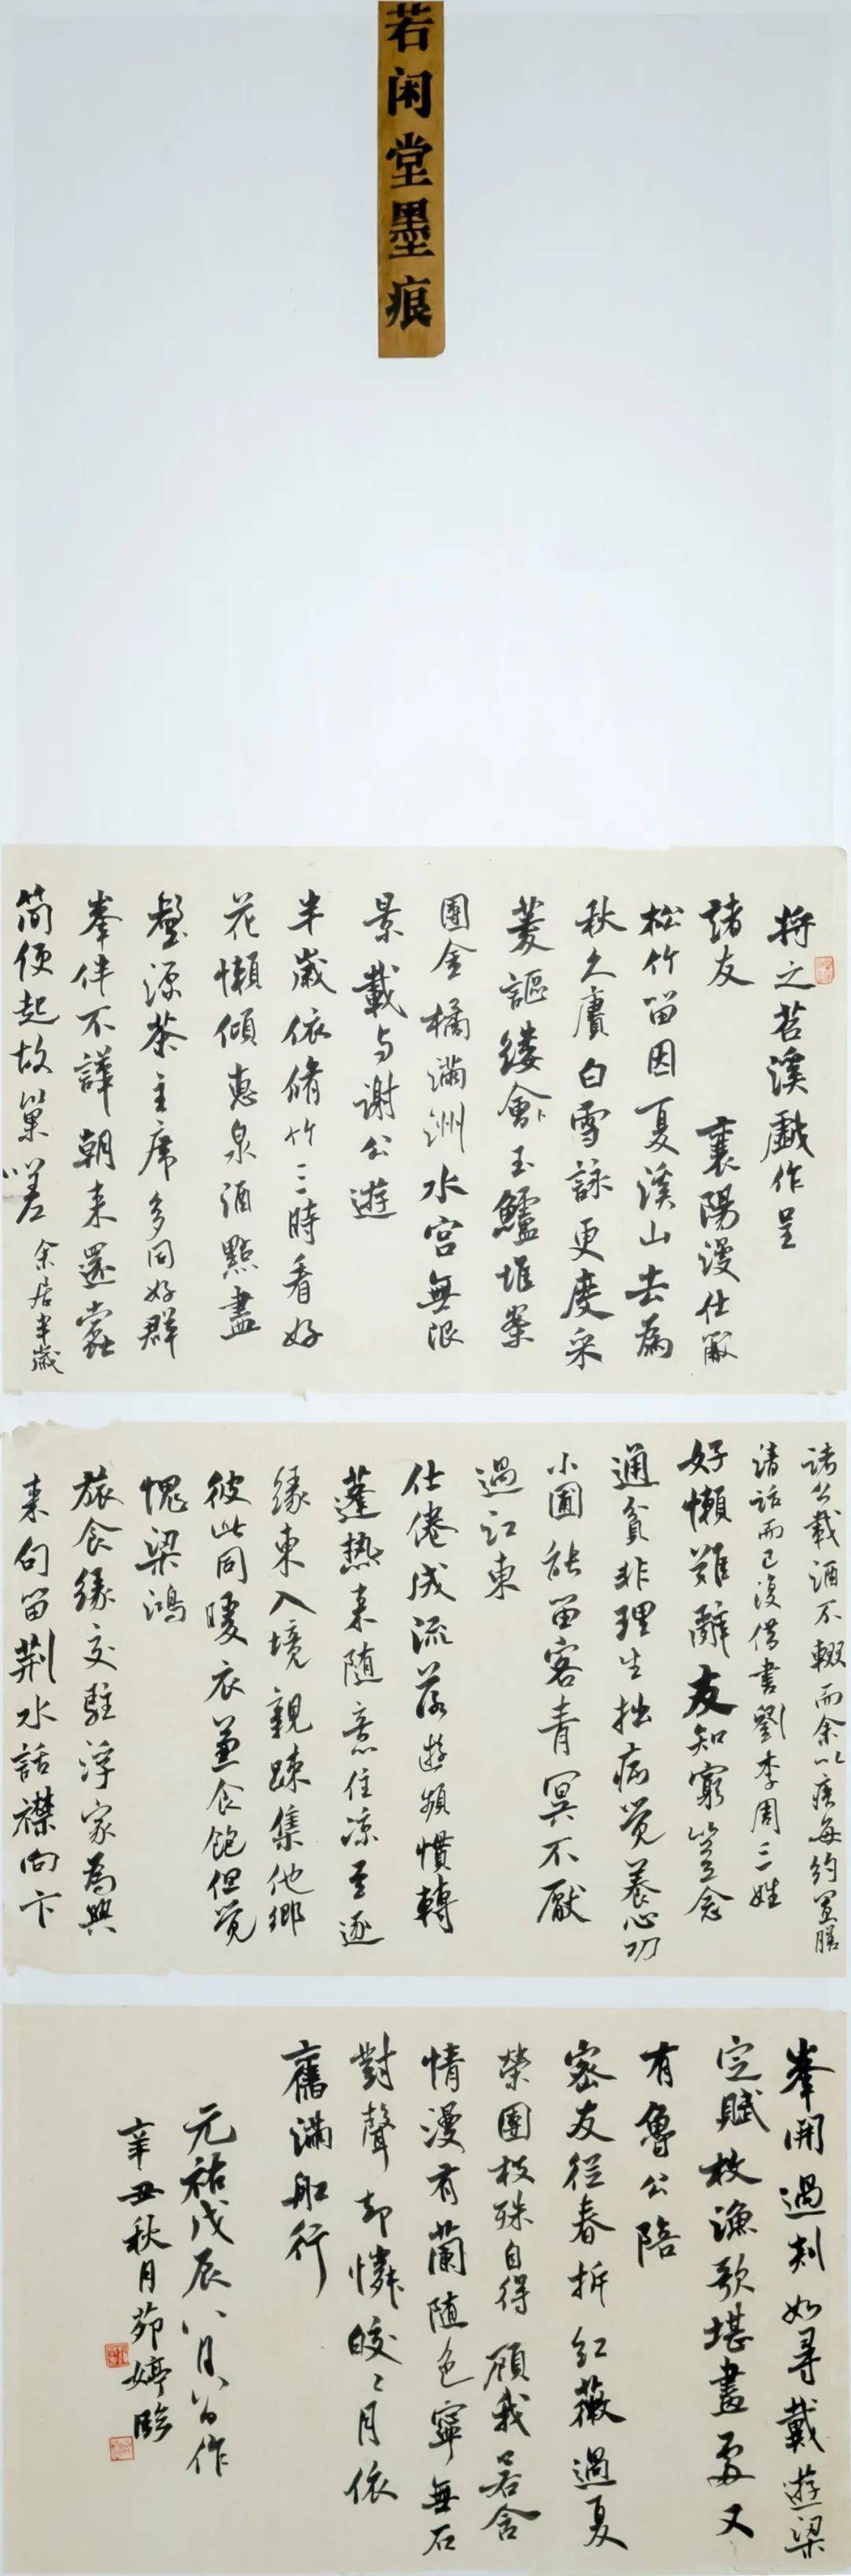 若闲堂墨痕
将之苕溪戲作呈
諸友 襄陽漫仕黻
松竹留因夏溪山去為
秋久賡白雪詠更度采
菱謳縷會玉鱸堆案
團金橘滿洲水宫無限
景載与謝公遊
半歲依脩竹三時看好
花懶傾惠泉酒點盡
壑源茶主席多同好群
峯伴不譁朝来還蠹
簡便起故巢嗟 余居半歲
諸公載酒不輟而余以疾每約置膳
清話而已復借書劉李周三姓
好懶難辭友知窮豈念
通貧非理生拙病覺養心功
小圃能留客青冥不厭
過江東
仕倦成流落遊頻慣轉
蓬熱来随意住凉至逐
緣東入境親疎集他鄉
彼此同暖衣兼食飽但覺
愧梁鴻
旅食緣交駐浮家為興
来句留荆水話襟向卞
峯開過剡如尋戴遊梁
定賦枚漁歌堪畫處又
有魯公陪
密友從春拆紅薇過夏
榮團枝殊自得顧我若含
情漫有蘭随色寧無石
對聲却憐皎々月依
舊滿舡行
元祐戊辰八月八日作
辛丑秋月茆婷臨